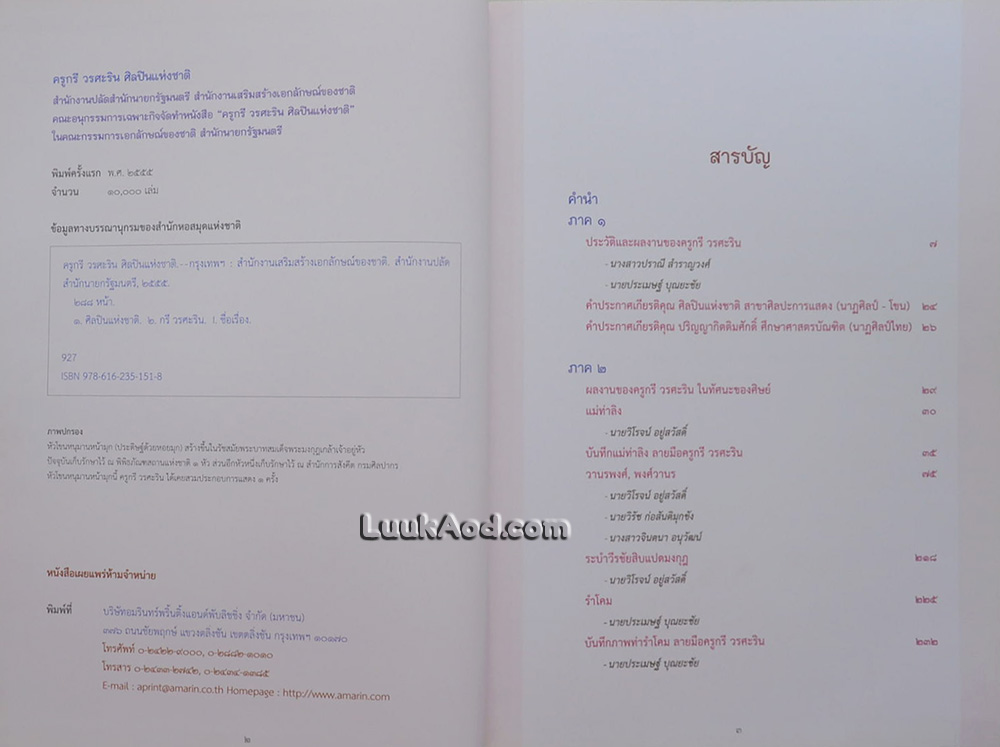 ครูกรี วรศะริน ศิลปินแห่งชาติ
สำนักงานปลัดสำนักนายกรัฐมนตรี สำนักงานเสริมสร้างเอกลักษณ์ของชาติ
คณะอนุกรรมการเฉพาะกิจจัดทำหนังสือ “ครูกรี วรศะริน ศิลปินแห่งชาติ”
ในคณะกรรมการเอกลักษณ์ของชาติ สำนักนายกรัฐมนตรี
พิมพ์ครั้งแรก พ.ศ. ๒๕๕๕
จำนวน ๑๐,๐๐๐ เล่ม
ข้อมูลทางบรรณานุกรมของสำนักหอสมุดแห่งชาติ
ครูกรี วรศะริน ศิลปินแห่งชาติ.--กรุงเทพฯ : สำนักงานเสริมสร้างเอกลักษณ์ของชาติ. สำนักงานปลัด
สำนักนายกรัฐมนตรี, ๒๕๕๕.
๒๘๘ หน้า.
๑. ศิลปินแห่งชาติ. ๒. กรี วรศะริน. I. ชื่อเรื่อง.
927
ISBN 978-616-235-151-8
ภาพปกรอง
หัวโขนหนุมานหน้ามุก (ประดิษฐ์ด้วยหอยมุก) สร้างขึ้นในรัชสมัยพระบาทสมเด็จพระมงกุฎเกล้าเจ้าอยู่หัว
ปัจจุบันเก็บรักษาไว้ ณ พิพิธภัณฑสถานแห่งชาติ ๑ หัว ส่วนอีกหัวหนึ่งเก็บรักษาไว้ ณ สำนักการสังคีต กรมศิลปากร
หัวโขนหนุมานหน้ามุกนี้ ครูกรี วรศะริน ได้เคยสวมประกอบการแสดง ๑ ครั้ง
LuukAod.com
หนังสือเผยแพร่ห้ามจำหน่าย
พิมพ์ที่ บริษัทอมรินทร์พริ้นติ้งแอนด์พับลิชชิ่ง จำกัด (มหาชน)
๓๗๖ ถนนชัยพฤกษ์ แขวงตลิ่งชัน เขตตลิ่งชัน กรุงเทพฯ ๑๐๑๗๐
โทรศัพท์ ๐-๒๔๒๒-๙๐๐๐, ๐-๒๘๘๒-๑๐๑๐
โทรสาร ๐-๒๔๓๓-๒๗๔๒, ๐-๒๔๓๔-๑๓๘๕
E-mail : aprint@amarin.co.th Homepage : http://www.amarin.com
๒
สารบัญ
คำนำ
ภาค ๑
ประวัติและผลงานของครูกรี วรศะริน ๗
- นางสาวปราณี สำราญวงศ์
- นายประเมษฐ์ บุณยะชัย
คำประกาศเกียรติคุณ ศิลปินแห่งชาติ สาขาศิลปะการแสดง (นาฏศิลป์ - โขน) ๒๔
คำประกาศเกียรติคุณ ปริญญากิตติมศักดิ์ ศึกษาศาสตรบัณฑิต (นาฏศิลป์ไทย) ๒๖
ภาค ๒
ผลงานของครูกรี วรศะริน ในทัศนะของศิษย์ ๒๙
แม่ท่าลิง ๓๐
- นายวิโรจน์ อยู่สวัสดิ์
บันทึกแม่ท่าลิง ลายมือครูกรี วรศะริน ๓๕
วานรพงศ์, พงศ์วานร ๗๕
- นายวิโรจน์ อยู่สวัสดิ์
- นายวิรัช ก่อสันติมุกขัง
- นางสาวจินตนา อนุวัฒน์
ระบำวีรชัยสิบแปดมงกุฎ ๒๑๘
- นายวิโรจน์ อยู่สวัสดิ์
รำโคม ๒๒๕
- นายประเมษฐ์ บุณยะชัย
บันทึกภาพท่ารำโคม ลายมือครูกรี วรศะริน ๒๓๒
- นายประเมษฐ์ บุณยะชัย
๓